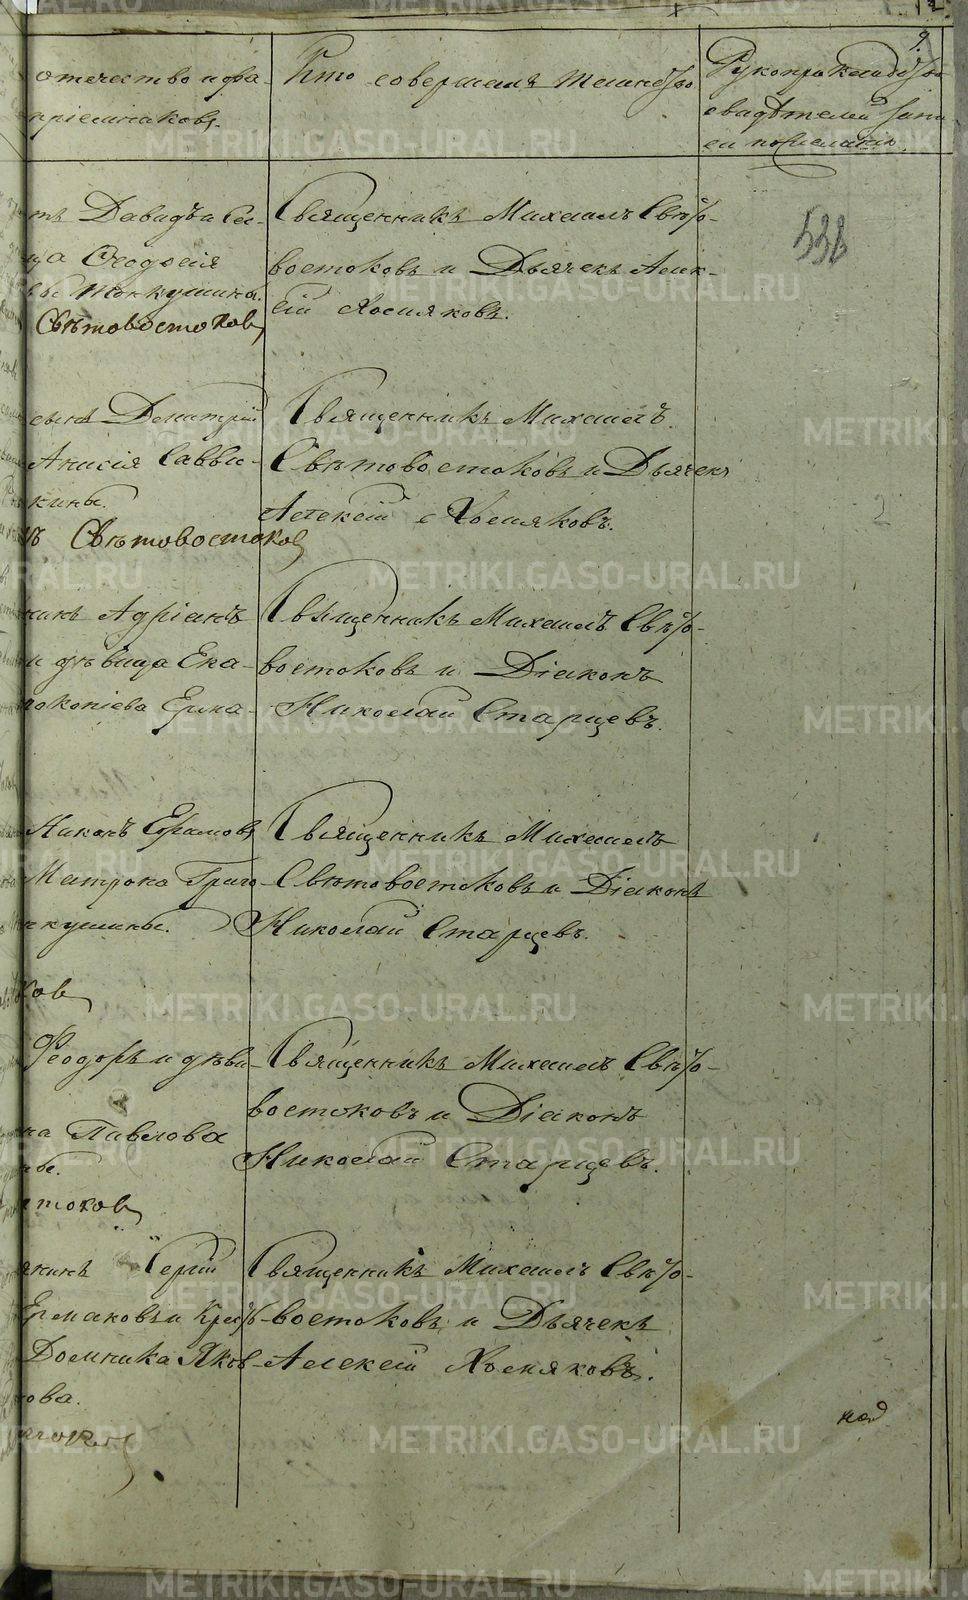 9.
отечество и фа-
пріемниковъ.
Кто совершалъ таинство
Рукоприкладство
свидѣтелей запи
си по желанію
тъ Давидъ и
ца Ѳеодосія
вы Тонкушины.
Свѣтовостоков
Священникъ Михаилъ Свѣто-
востоковъ и Дьячекъ Алек-
сій Хосняковъ.
538
сынъ Димитрій
Анисія Савви-
кины.
ъ Свѣтовостоков
Священникъ Михаилъ
Свѣтовостоковъ и Дьячекъ
Алексій Хосняковъ.
2
нинъ Адріанъ
и дѣвица Ека-
рокопіева Ерма-
Священникъ Михаилъ Свѣто-
востоковъ и Діаконъ
Николай Старцевъ.
Никонъ Ефимовъ
Матрона Григо-
нкушины.
ков
Священникъ Михаилъ
Свѣтовостоковъ и Діаконъ
Николай Старцевъ.
Феодоръ и дѣви-
на Павлова
ны.
стоков
Священникъ Михаилъ Свѣто-
востоковъ и Діаконъ
Николай Старцевъ.
янинъ Сергій
Ермаковъ и Крест-
Домника Яков-
кова.
Священникъ Михаилъ Свѣто-
востоковъ и Дьячекъ
Алексій Хосняковъ.
METRIKI.GASO-URAL.RU